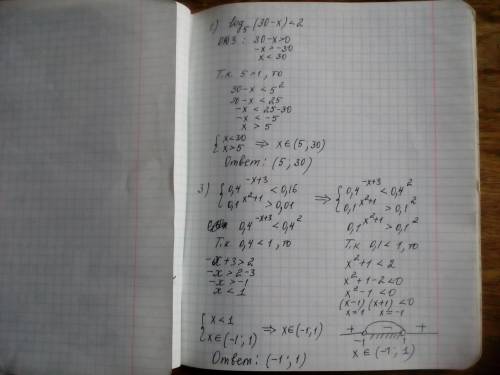 2) log₅ (30-x) < 2
ОДЗ: 30-x>0
-x>-30
x<30
Т.к. 5>1, то
30-x < 5²
30-x < 25
-x < 25-30
-x < -5
x > 5
{ x<30
{ x>5 ⟹ x∈(5; 30)
Ответ: (5; 30)
3) { 0,4^(-x+3) < 0,16 ⟹ { 0,4^(-x+3) < 0,4²
{ 0,1^(x²+1) > 0,01 { 0,1^(x²+1) > 0,1²
0,4^(-x+3) < 0,4²
Т.к. 0,4 < 1, то
-x+3>2
-x>2-3
-x>-1
x<1
0,1^(x²+1) > 0,1²
Т.к. 0,1<1, то
x²+1<2
x²+1-2<0
x²-1<0
(x-1)(x+1)<0
x=1 x=-1
+ - +
-1 1
x∈(-1; 1)
{ x<1
{ x∈(-1; 1) ⟹ x∈(-1; 1)
Ответ: (-1; 1)